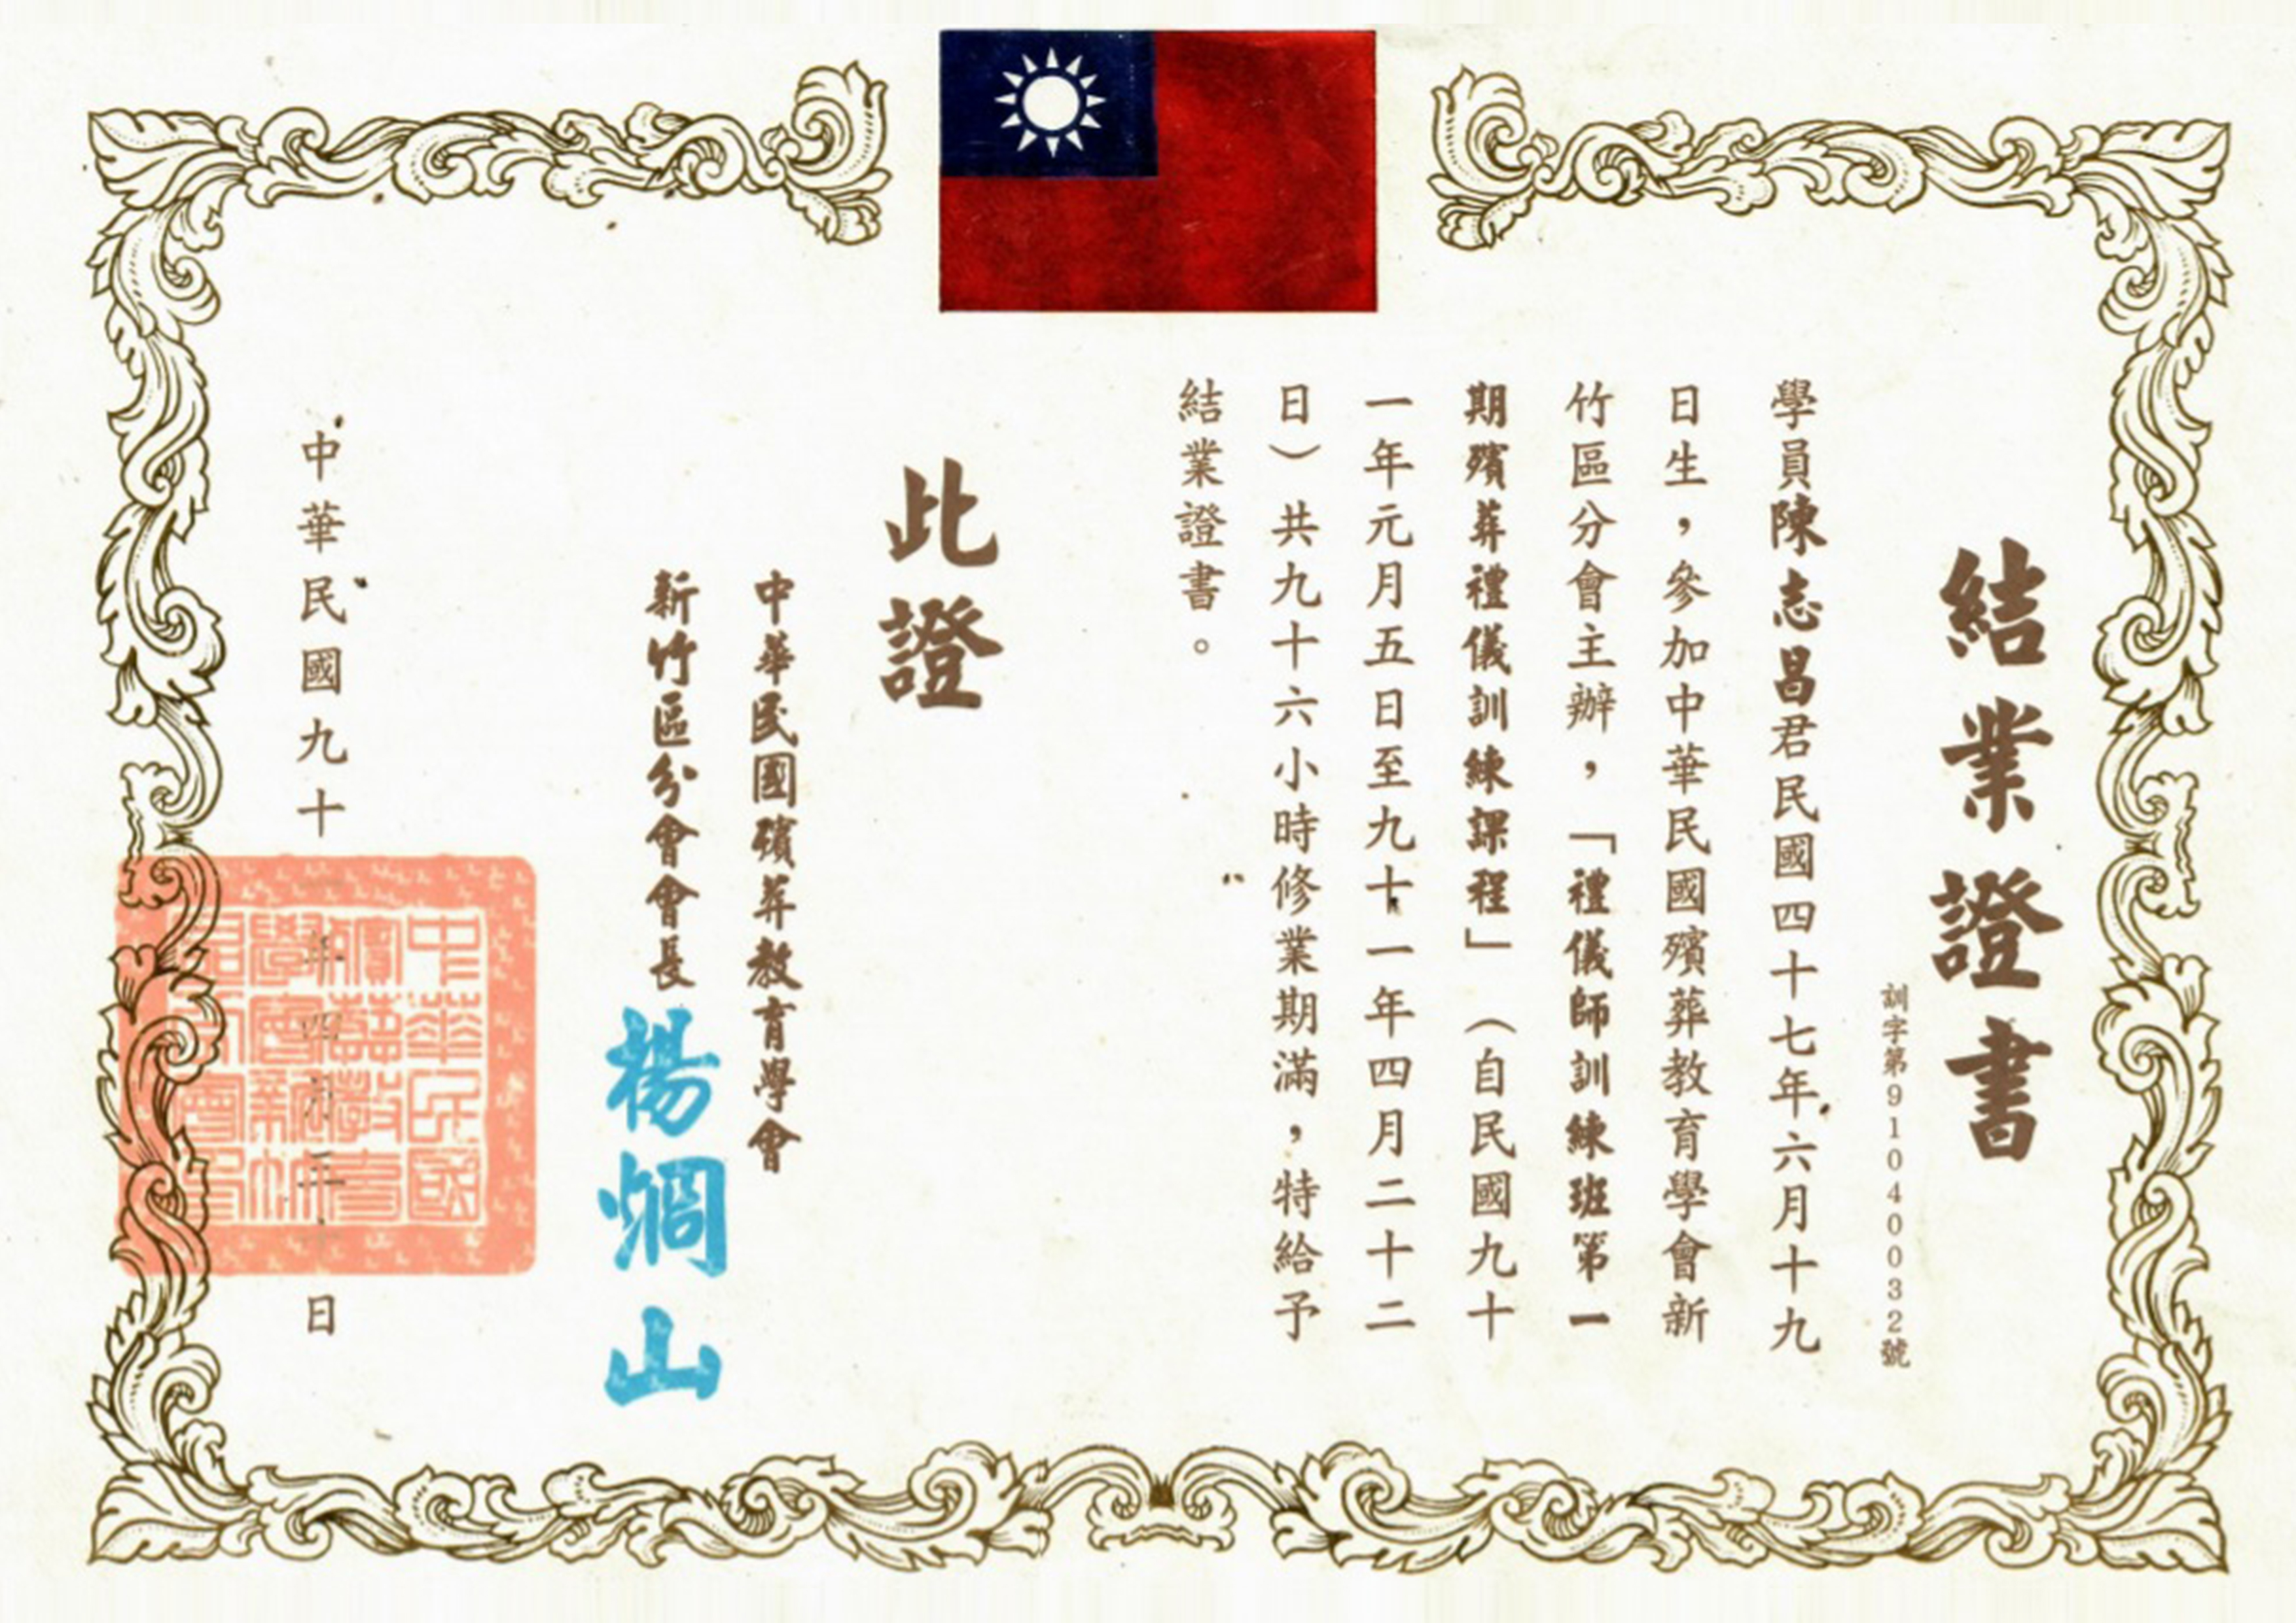 結業證書
訓字第91040032號
學員陳志昌君民國四十七年六月十九
日生，參加中華民國殯葬教育學會新
竹區分會主辦，「禮儀師訓練班第一
期殯葬禮儀訓練課程」（自民國九十
一年元月五日至九十一年四月二十二
日）共九十六小時修業期滿，特給予
結業證書。
此證
中華民國殯葬教育學會
新竹區分會會長 楊烱山
中華民國九十一年四月三十日